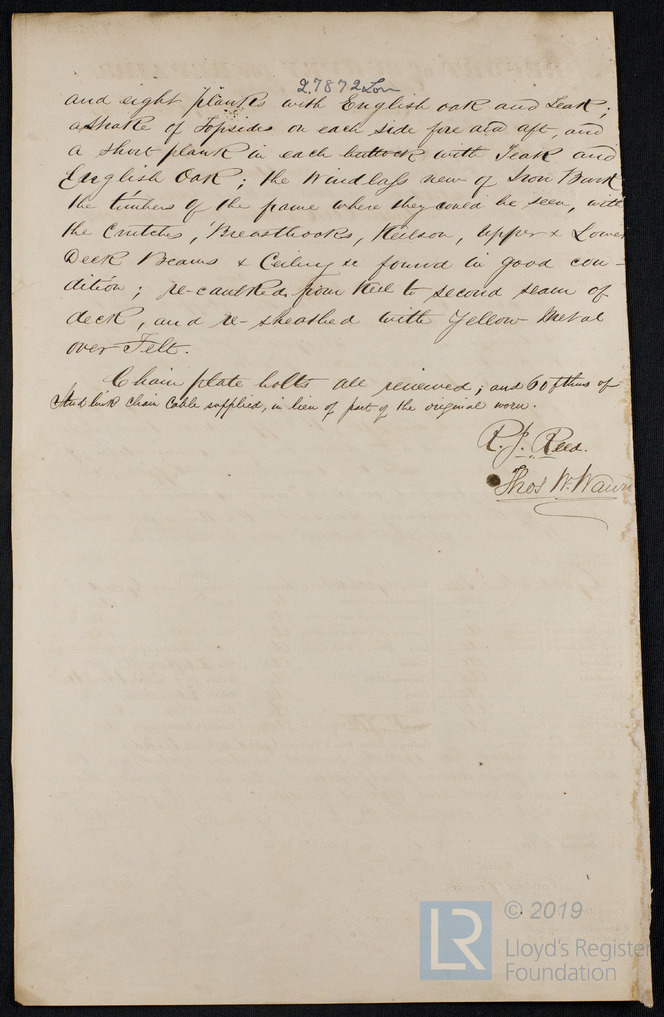 27872 Lon
and eight planks with English oak and Teak;
a Strake of Topsides on each side fore and aft, and
a short plank in each buttock with Teak and
English Oak; the Windlass new of Iron Bark
the timbers of the frame where they could be seen, with
the Crutches, Breasthooks, Keilson, upper & Lower
Deck Beams & Ceiling &c found in good con-
dition; re-caulked from Keel to second seam of
deck, and re-sheathed with Yellow Metal
over Felt.
Chain plate bolts all renewed; and 60 fthms of
Stud link chain Cable supplied, in lieu of part of the original worn.
R. J. Reed.
Thos W.
© 2019
LR
Lloyd's Register
Foundation